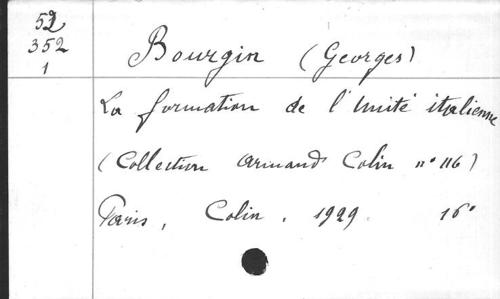 52
352
1
Bourgin (Georges)
La formation de l'Unité italienne
(Collection Armand Colin n° 116)
Paris, Colin, 1929. 16°